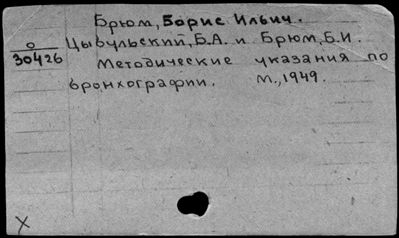 Брюм, Борис Ильич.
О Цыбульский, Б.А. и Брюм, Б.И.
30426 Методические указания по
бронхографии. М., 1949.
X